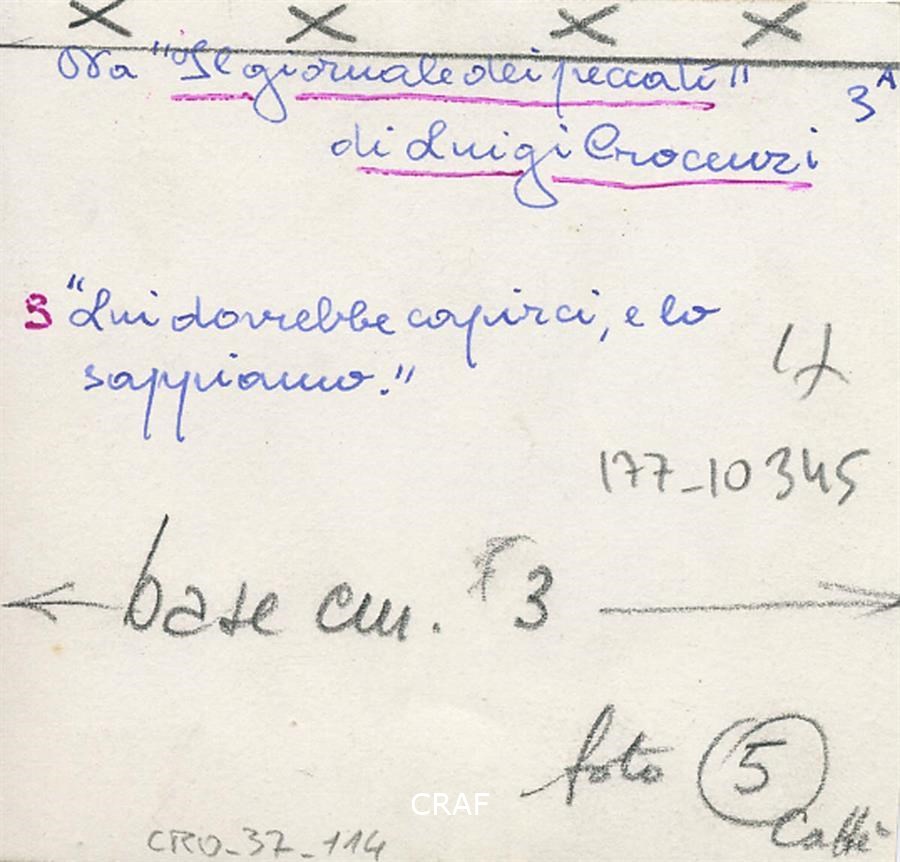 X X X X
Da "Il giornale dei peccati" 3A
di Luigi Crocenzi
3 "Lui dovrebbe capirci, e lo
sappiamo."
177-10345
base cm. 3
foto 5
Caffè
CRAF
CRO-37-114